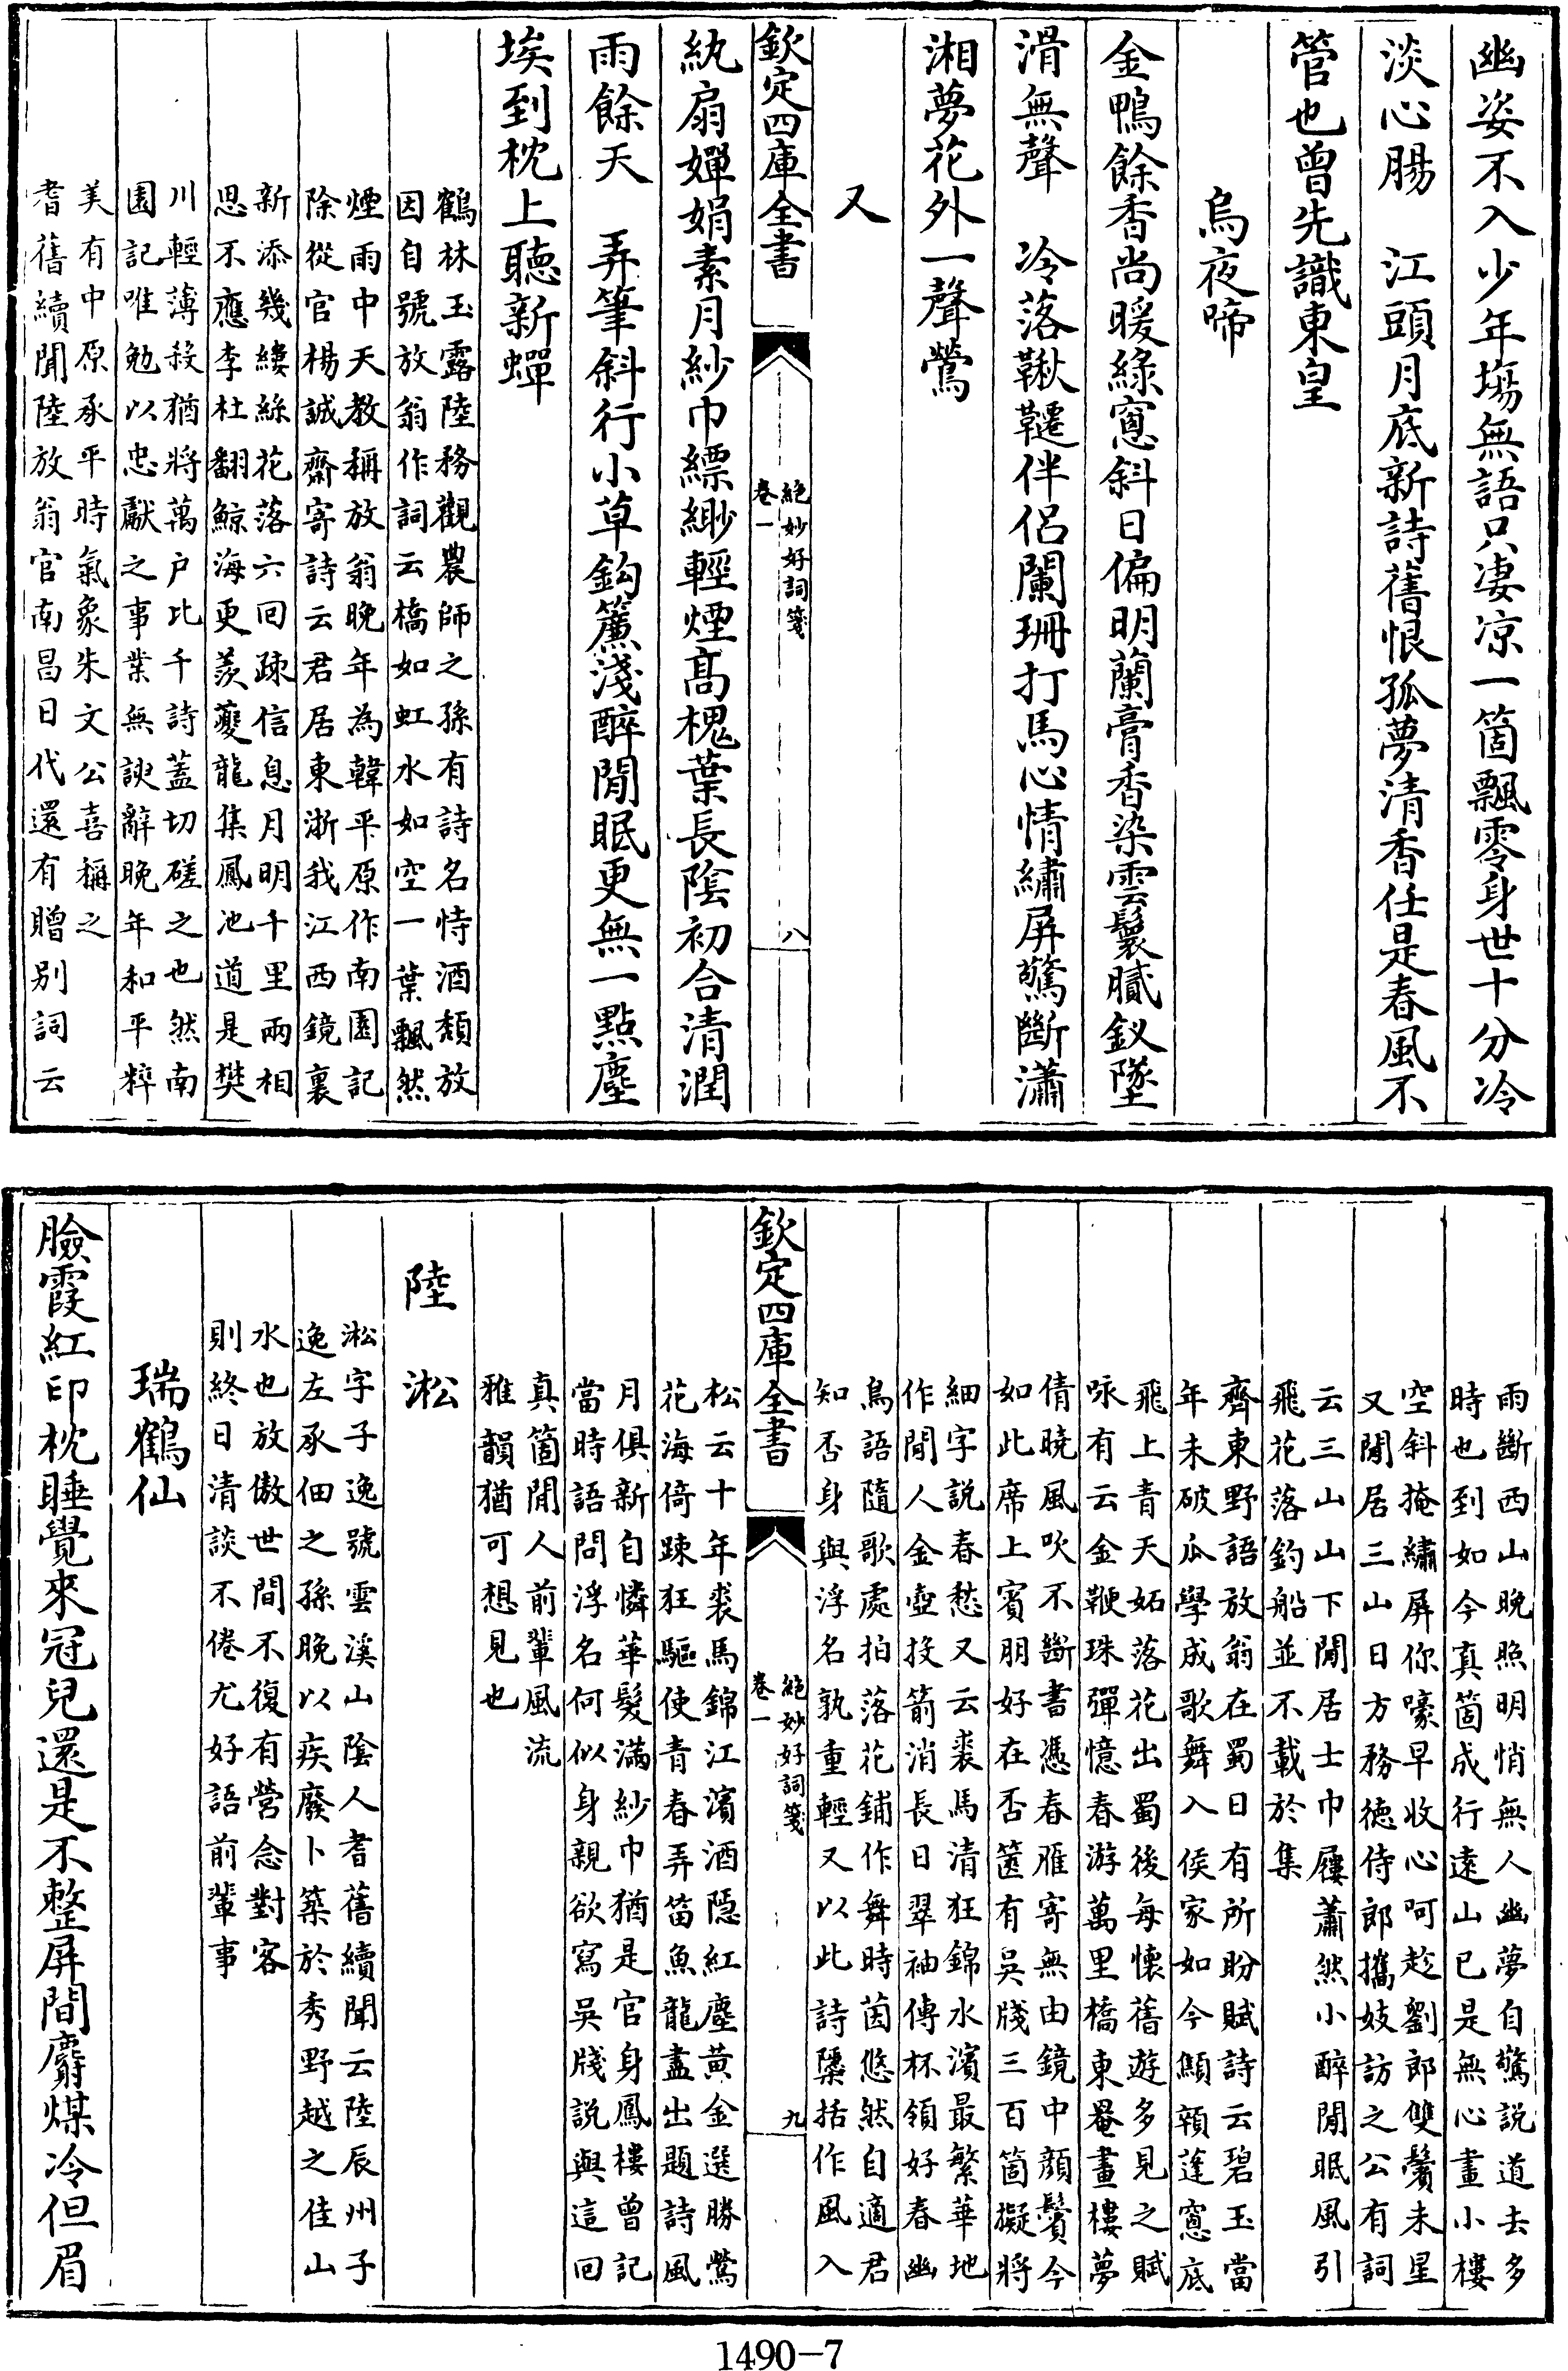 幽姿不入少年塲無語只凄凉一箇飄零身世十分冷
淡心腸　江頭月底新詩舊恨孤夢清香任是春風不
管也曾先識東皇
烏夜啼
金鴨餘香尚暖綠窓斜日偏明蘭膏香染雲鬟膩釵墜
滑無聲　冷落鞦韆伴侶闌珊打馬心情繡屏驚斷瀟
湘夢花外一聲鶯
又
欽定四庫全書
絕妙好詞箋
卷一
八
紈扇嬋娟素月紗巾縹緲輕煙高槐葉長陰初合清潤
雨餘天　弄筆斜行小草鈎簾淺醉閒眠更無一點塵
埃到枕上聽新蟬
鶴林玉露陸務觀農師之孫有詩名恃酒頹放
因自號放翁作詞云橋如虹水如空一葉飄然
煙雨中天教稱放翁晚年為韓平原作南園記
除從官楊誠齋寄詩云君居東浙我江西鏡裏
新添幾縷絲花落六回疎信息月明千里兩相
思不應李杜翻鯨海更羨夔龍集鳳池道是樊
川輕薄殺猶將萬户比千詩蓋切磋之也然南
園記唯勉以忠獻之事業無諛辭晚年和平粹
美有中原承平時氣象朱文公喜稱之
耆舊續聞陸放翁官南昌日代還有贈别詞云
雨斷西山晚照明悄無人幽夢自驚説道去多
時也到如今真箇成行遠山已是無心畫小樓
空斜掩繡屏你嚎早收心呵趁劉郎雙鬢未星
又閒居三山日方務德侍郎攜妓訪之公有詞
云三山山下閒居士巾屨蕭然小醉閒眠風引
飛花落釣船並不載於集
齊東野語放翁在蜀日有所盼賦詩云碧玉當
年未破瓜學成歌舞入侯家如今顦顇蓬窓底
飛上青天妬落花出蜀後每懷舊遊多見之賦
咏有云金鞭珠彈憶春游萬里橋東罨畫樓夢
倩曉風吹不斷書憑春雁寄無由鏡中顔鬢今
如此席上賓朋好在否篋有吳牋三百箇擬將
細字説春愁又云裘馬清狂錦水濱最繁華地
作閒人金壺投箭消長日翠袖傳杯領好春幽
鳥語隨歌處拍落花鋪作舞時茵悠然自適君
知否身與浮名孰重輕又以此詩檃括作風入
欽定四庫全書
絕妙好詞箋
卷一
九
松云十年裘馬錦江濱酒隱紅塵黄金選勝鶯
花海倚疎狂驅使青春弄笛魚龍盡出題詩風
月俱新自憐華髮滿紗巾猶是官身鳳樓曾記
當時語問浮名何似身親欲寫吳牋説與這回
真箇閒人前輩風流
雅韻猶可想見也
陸　淞
淞字子逸號雲溪山陰人耆舊續聞云陸辰州子
逸左丞佃之孫晚以疾廢卜築於秀野越之佳山
水也放傲世間不復有營念對客
則終日清談不倦尤好語前輩事
瑞鶴仙
臉霞紅印枕睡覺來冠兒還是不整屏間麝煤冷但眉
1490-7